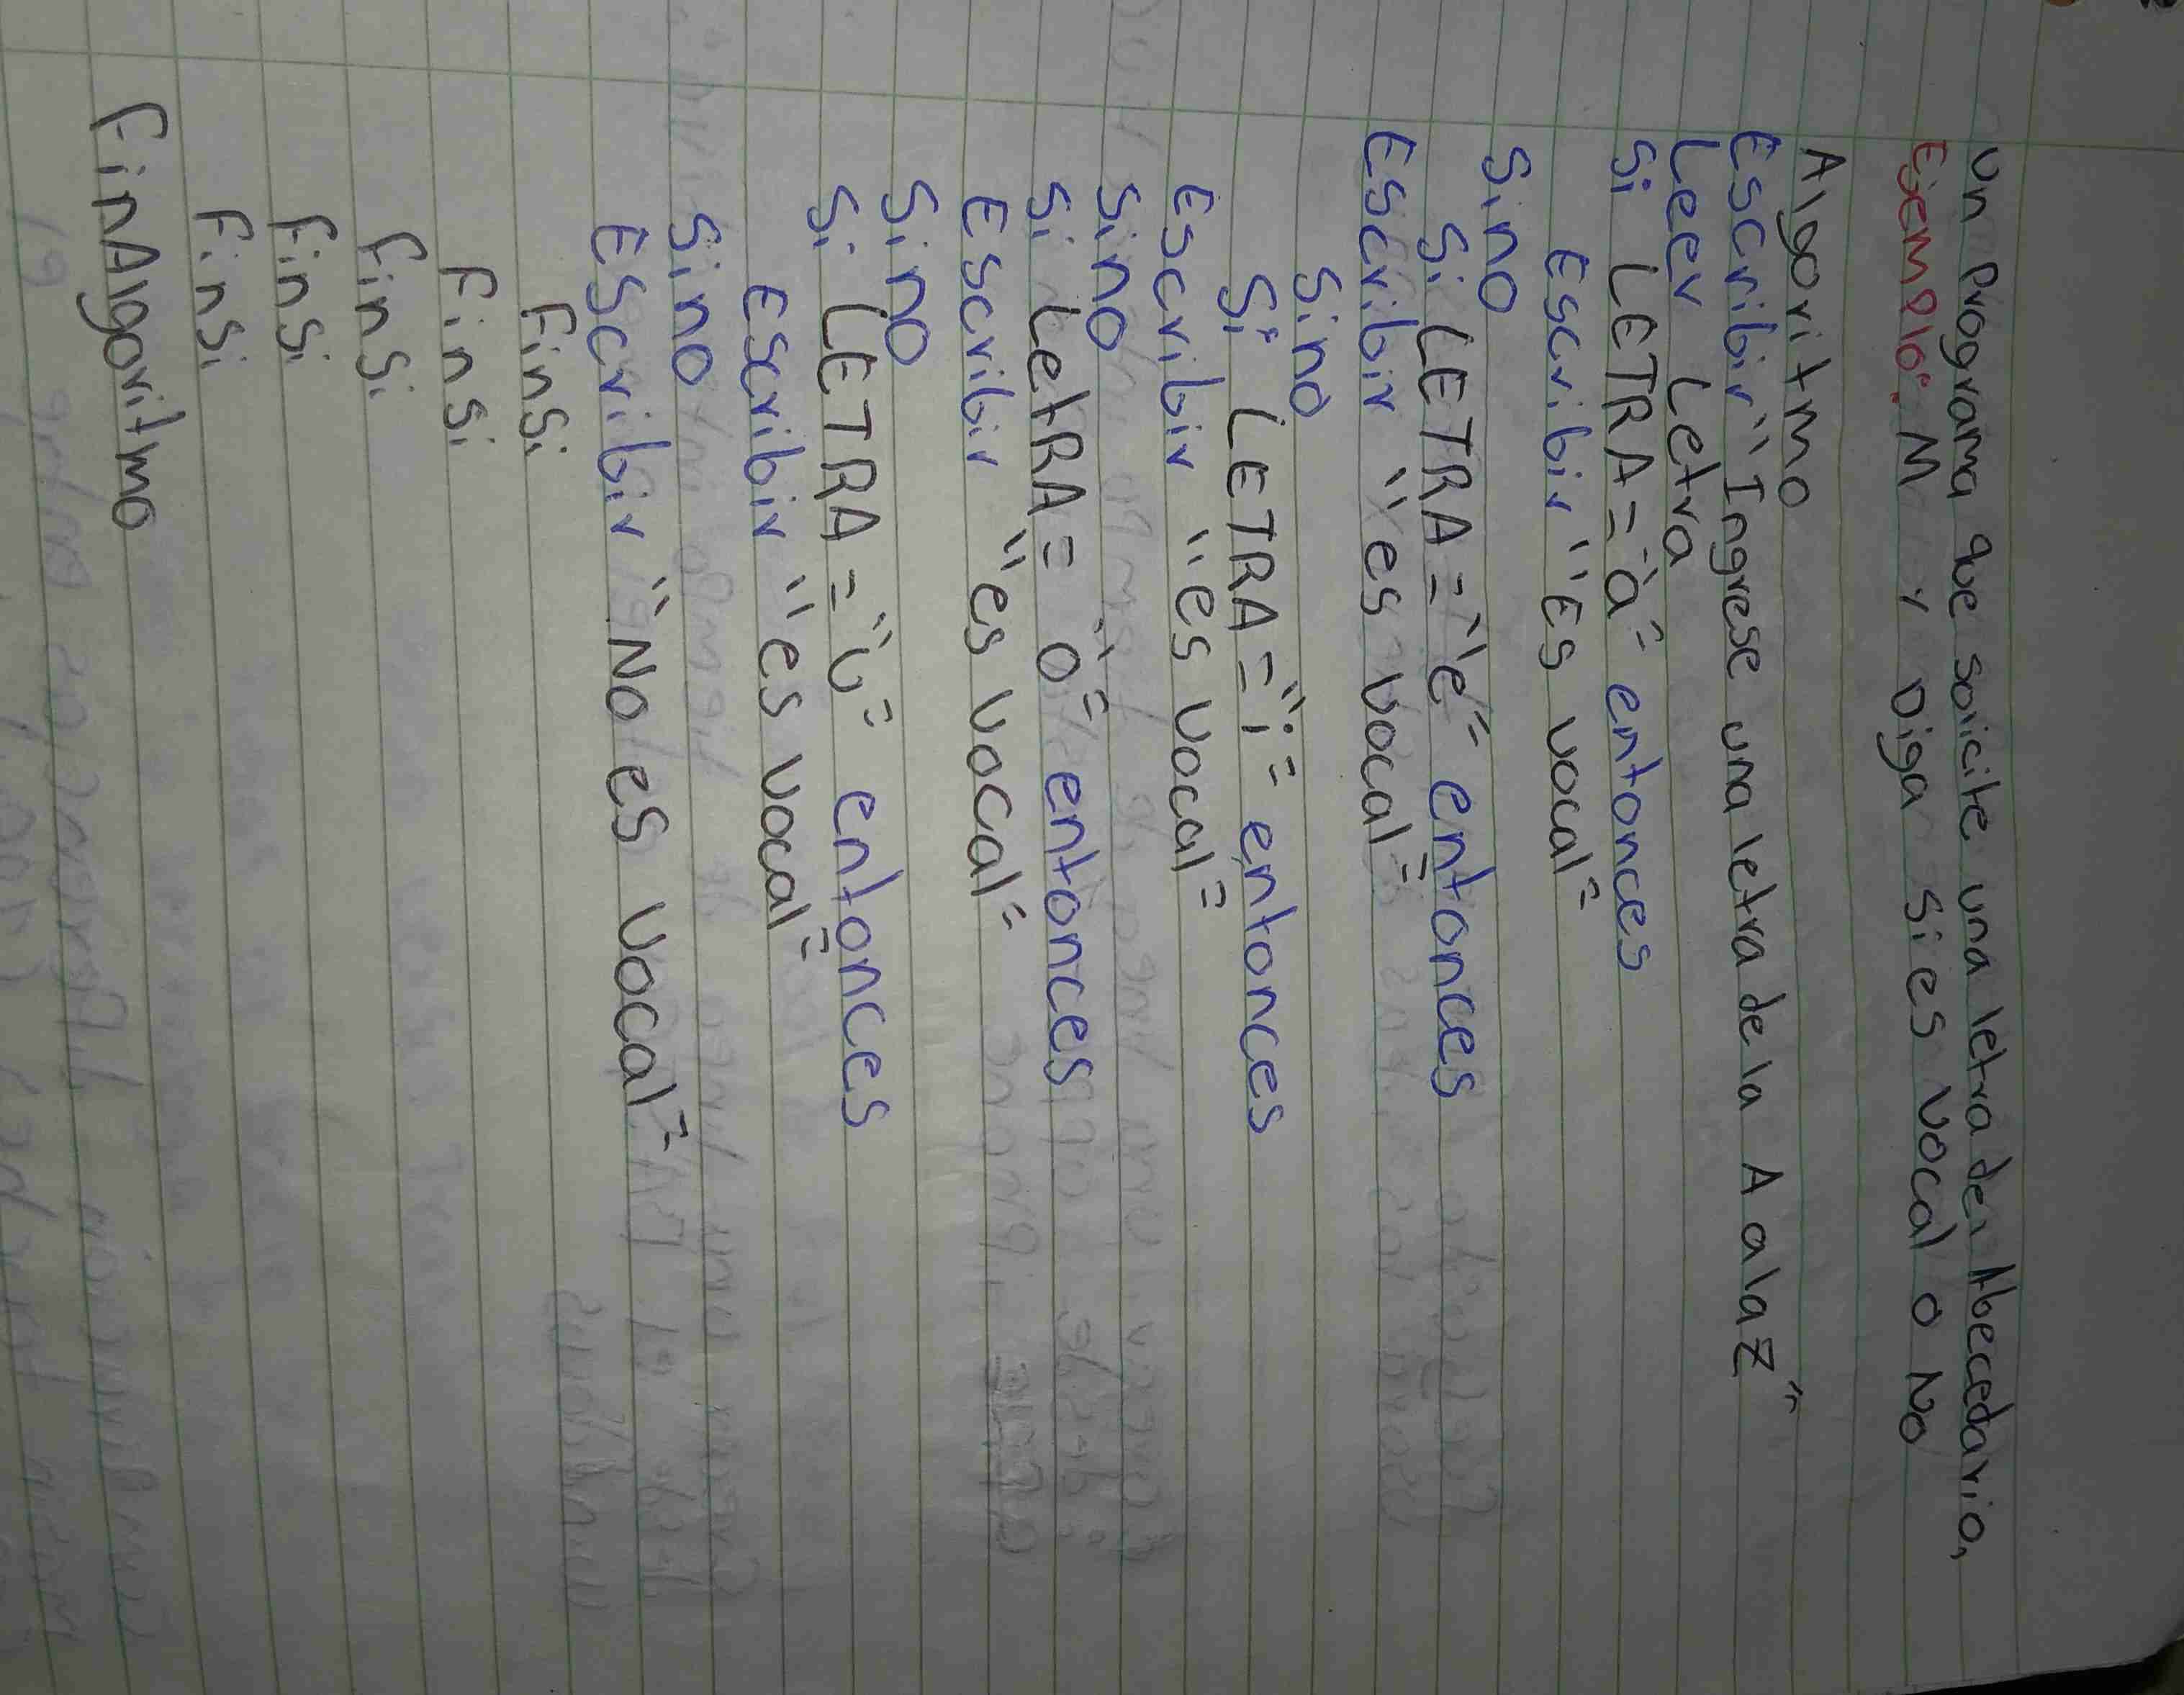 Un Programa que solicite una letra del Abecedario,
Ejemplo: M y Diga si es vocal o No
Algoritmo
Escribir "Ingrese una letra de la A a la Z"
Leer Letra
Si LETRA = "a" entonces
Escribir "Es vocal"
Sino
Si LETRA = "e" entonces
Escribir "es vocal"
Sino
Si LETRA = "i" entonces
Escribir "es vocal"
Sino
Si LetRA = "o" entonces
Escribir "es vocal"
Sino
Si LETRA = "u" entonces
Escribir "es vocal"
Sino
Escribir "No es vocal"
FinSi
FinSi
FinSi
FinSi
FinSi
FinAlgoritmo